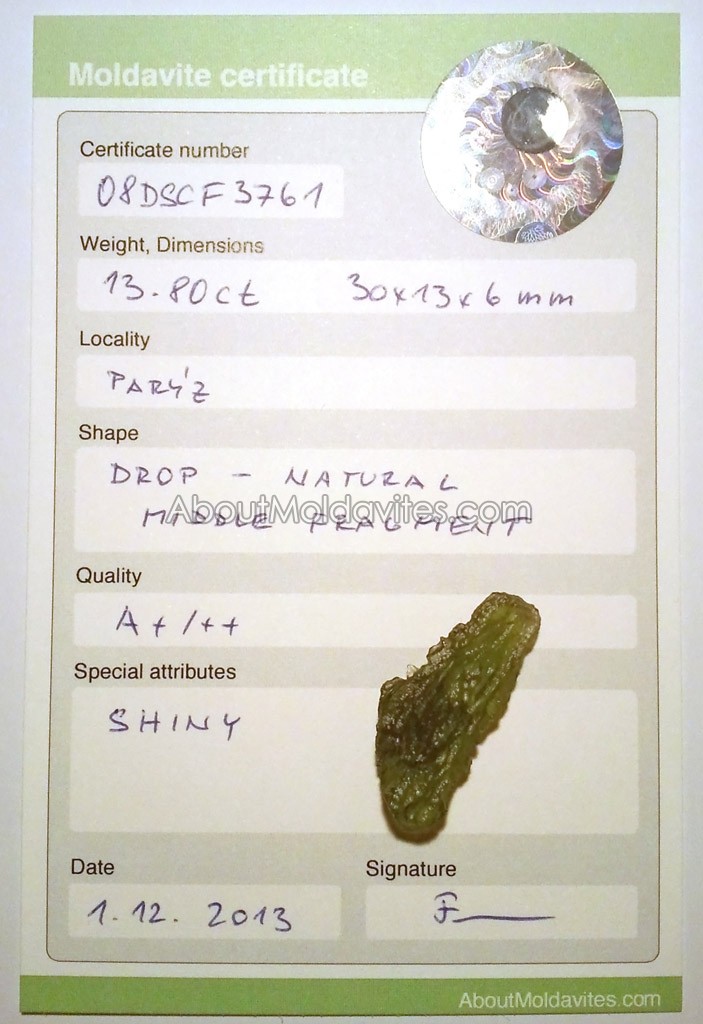 Moldavite certificate
Certificate number
08DSCF3761
Weight, Dimensions
13.80ct 30x13x6 mm
Locality
PARÝZ
Shape
DROP - NATURAL
MIDDLE FRAGMENT
AboutMoldavites.com
Quality
A+/++
Special attributes
SHINY
Date Signature
1.12. 2013
AboutMoldavites.com